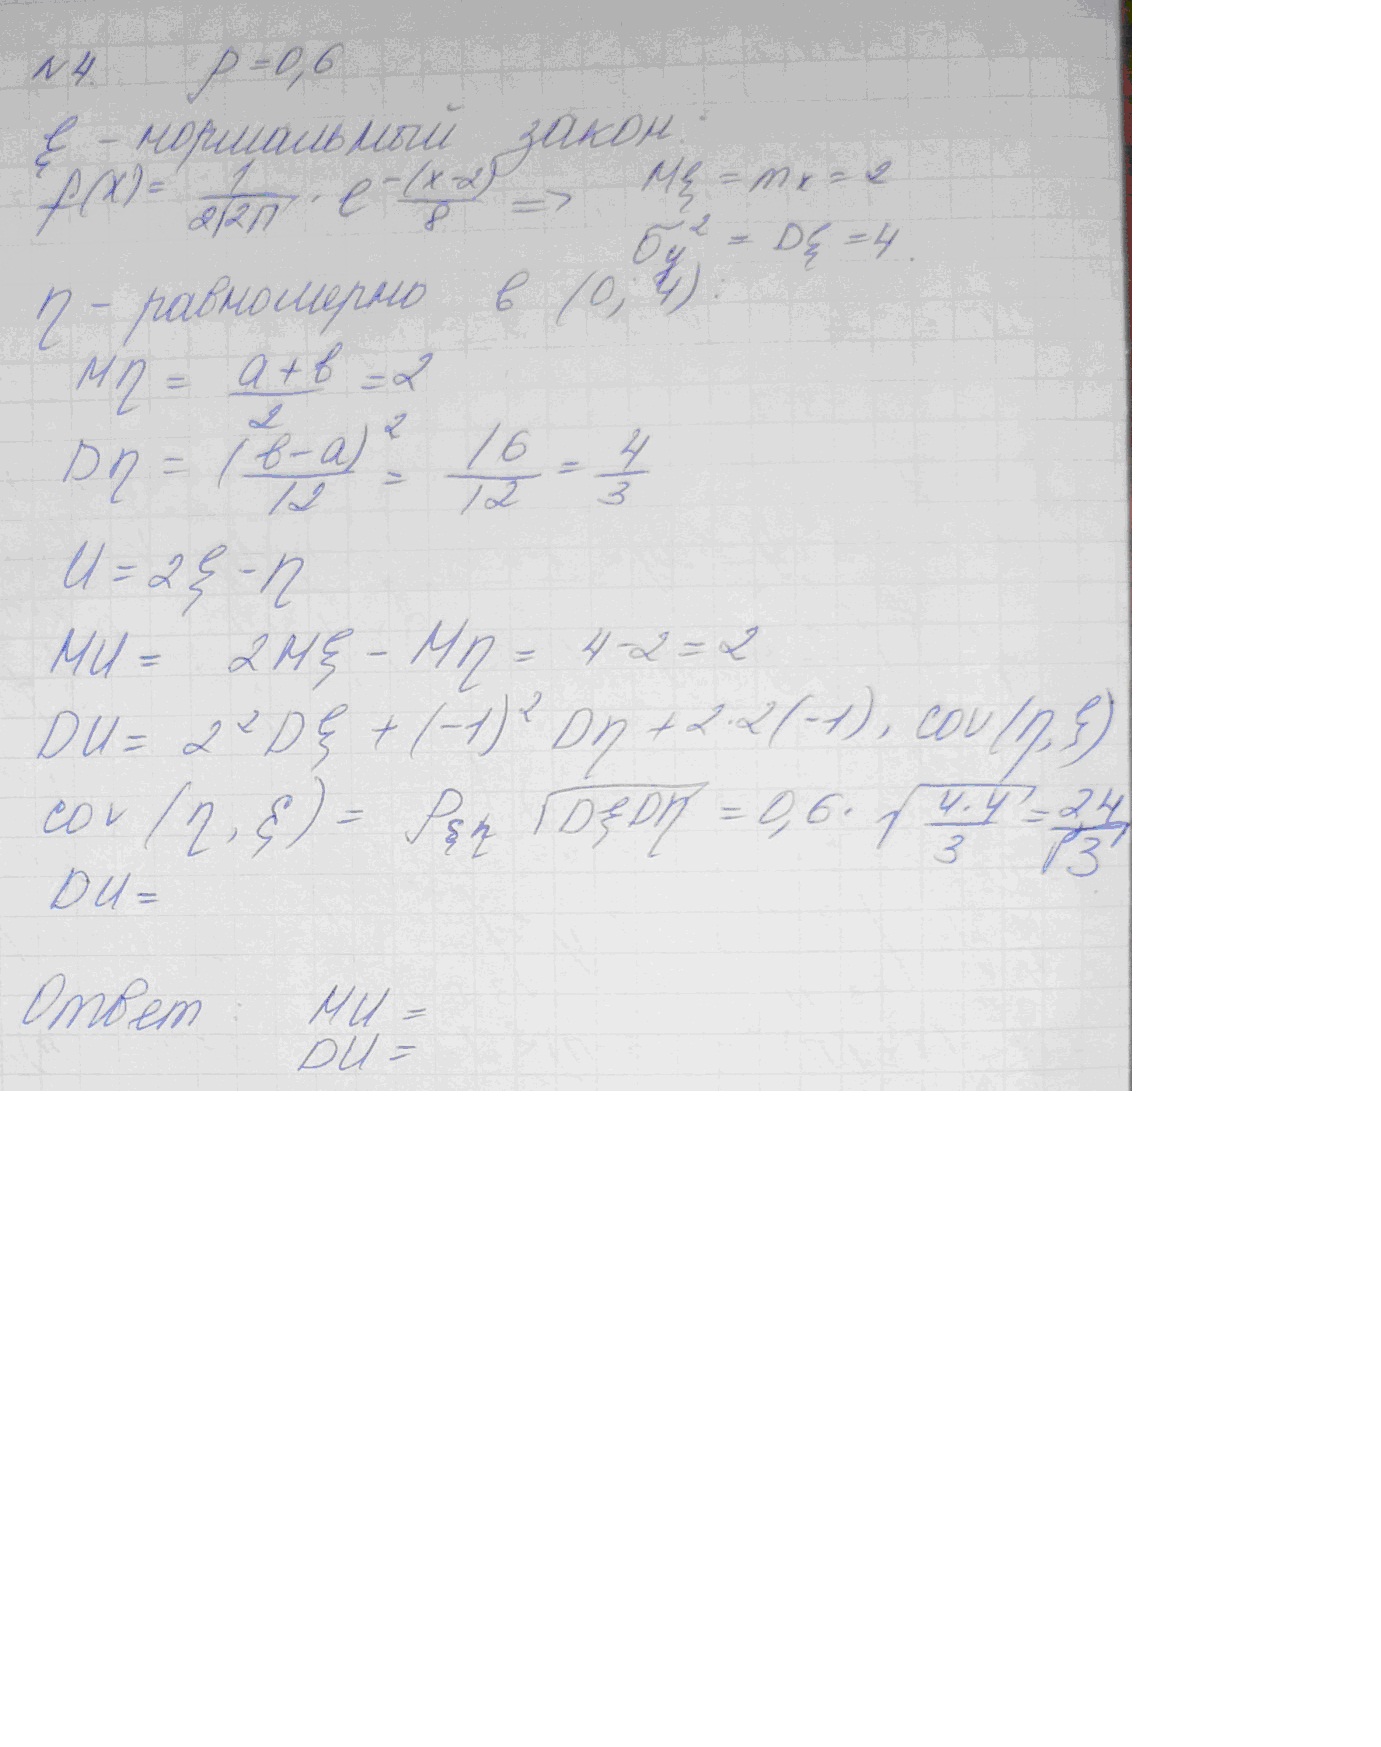 №4. ρ = 0,6
ξ - нормальный закон:
f(x) = 1/(2√2π) · e^(-(x-2)/8) => Mξ = mx = 2
σy² = Dξ = 4.
η - равномерно в (0; 4):
Mη = (a+b)/2 = 2
Dη = (b-a)²/12 = 16/12 = 4/3
U = 2ξ - η
MU = 2Mξ - Mη = 4-2 = 2
DU = 2²Dξ + (-1)² Dη + 2·2(-1), cov(η, ξ)
cov(η, ξ) = ρξη √DξDη = 0,6 · √(4·4/3) = 2,4/√3
DU =
Ответ: MU =
DU =